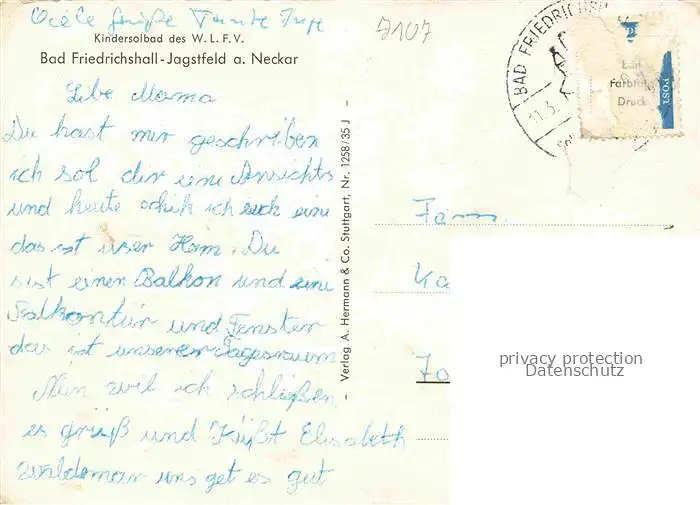 Viele Grüße Tante Inge
7107
Kindersolbad des W. L. F. V.
Bad Friedrichshall-Jagstfeld a. Neckar
Libe Mama
Du hast mir geschriben
ich sol dir eine Ansichts
und heute schik ich euch eine
das ist unser Ham. Du
sist einen Balkon und eine
Balkontür und Fenster
das ist unserer Tagesraum
Nun wil ich schließen
es grüß und Küßt Elisabeth
Wildeman uns get es gut
- Verlag A. Hermann & Co. Stuttgart, Nr. 1258/35 J -
BAD FRIEDRICHSH
11.3.
Farbfoto
Druck
POST
Fam.
Ka
privacy protection
Datenschutz